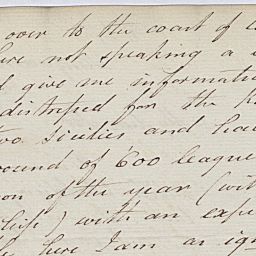 over to the coast of
here not speaking a
give me informati
distressed for the
two Sicilies and ha
round of 600 league
on of the year (wit
life) with an expe
here I am as ig